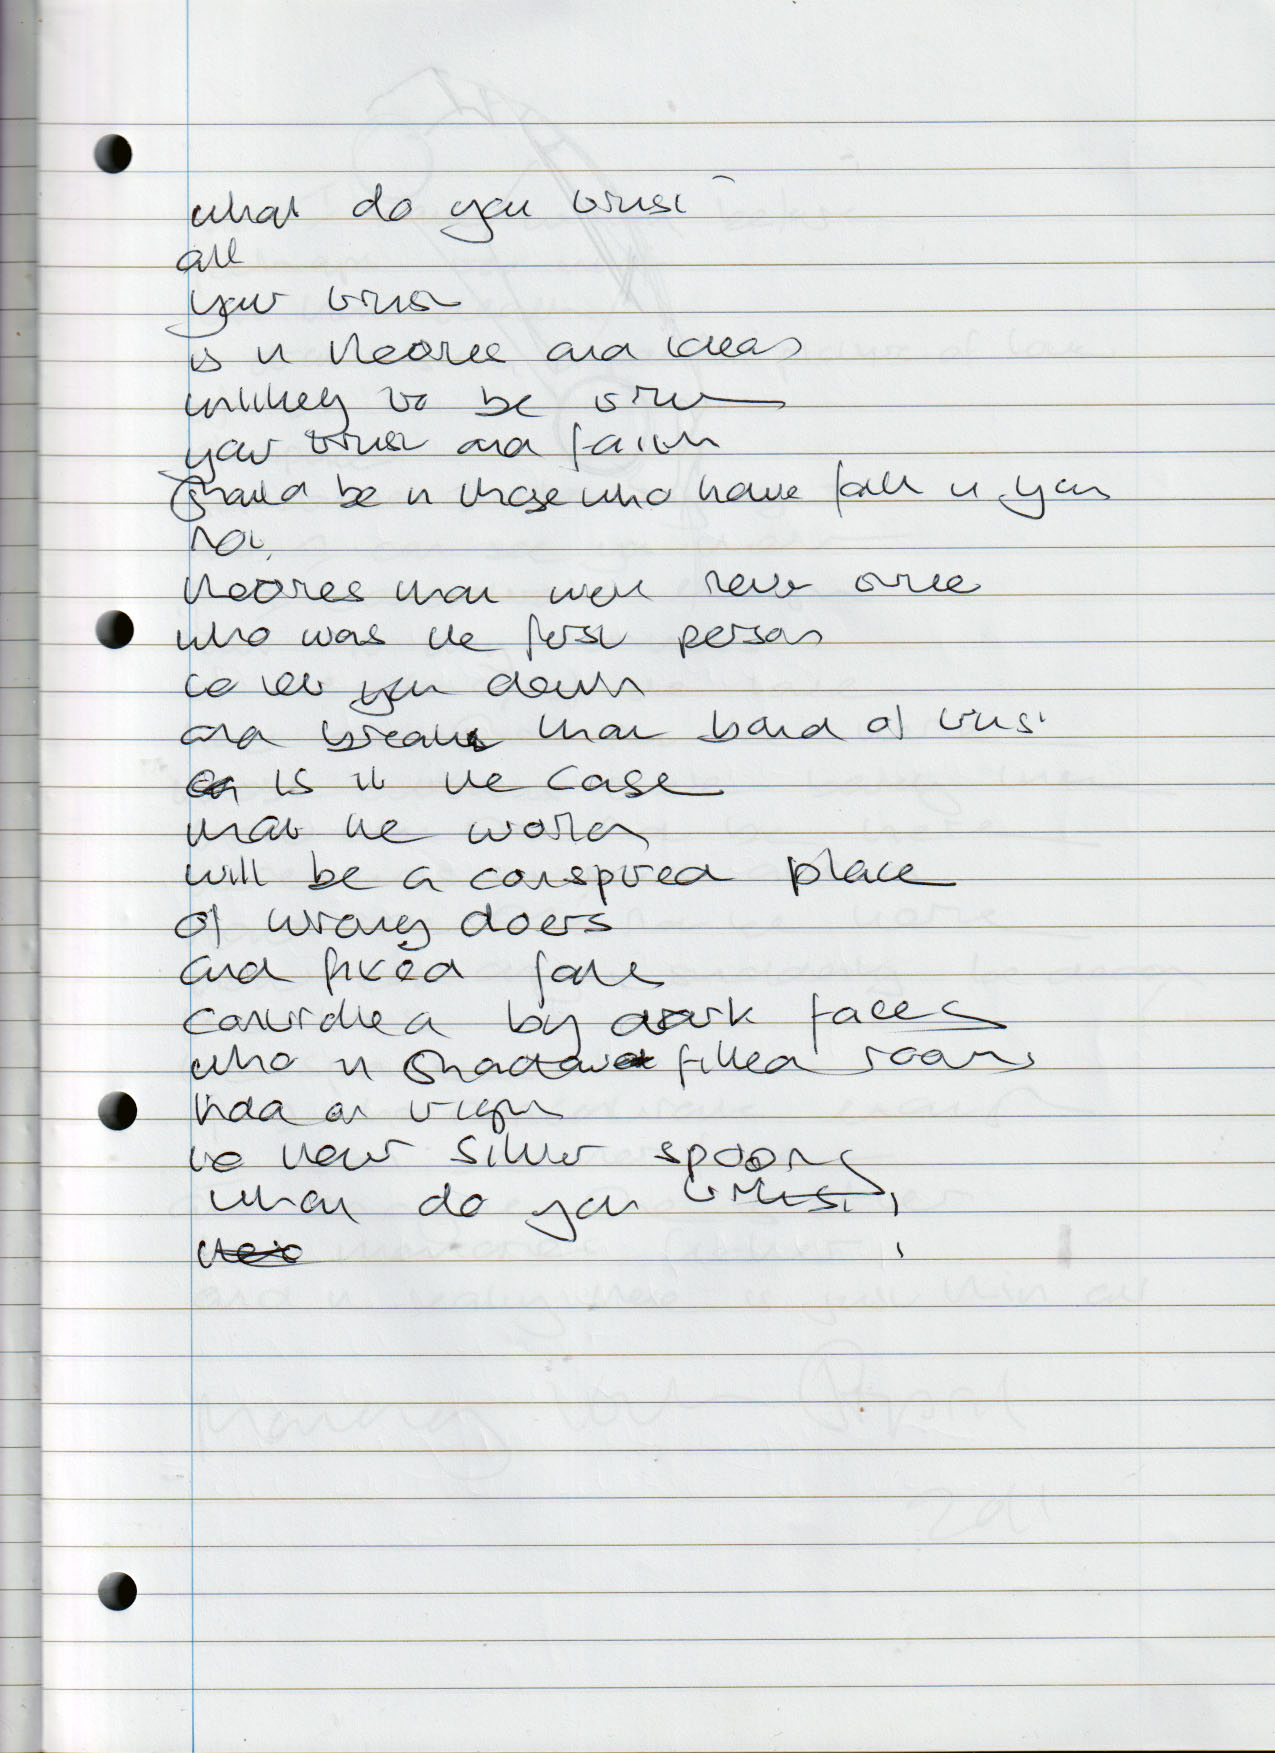 what do you trust
all
your trust
is in theories and ideas
unlikey to be true
your trust and faith
should be in those who have faith in you
not
theories that will never
who was the first person
to let you down
and break that band of trust
is it the case
that the world
will be a conspired place
of wrong doers
and fixed fate
by dark faces
who in shadow filled rooms
hold on
to their silver spoons
what do you trust